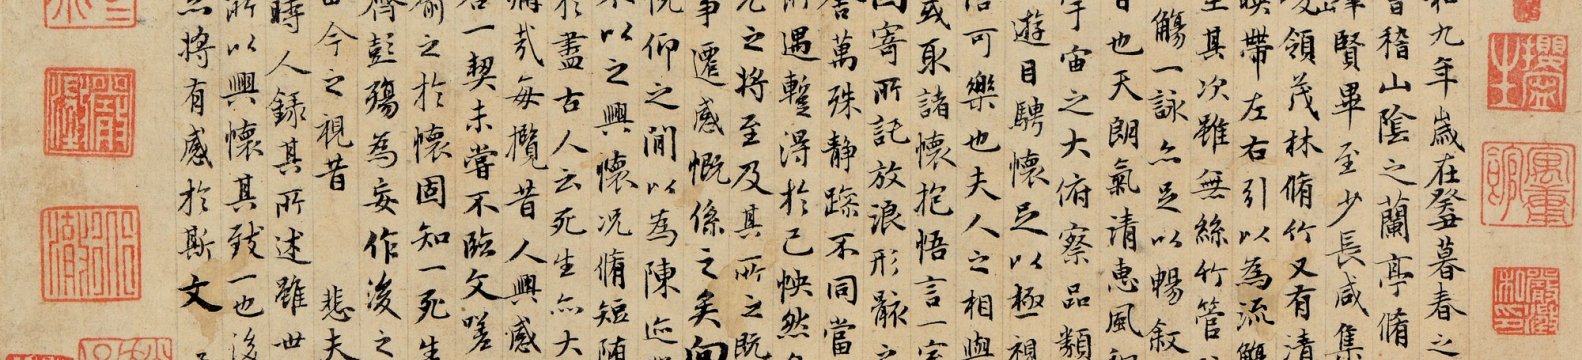 和九年歲在癸丑暮春之
稽山陰之蘭亭脩
賢畢至少長咸集
領茂林脩竹又有清
暎帶左右引以為流觴
坐其次雖無絲竹管
觴一詠亦足以暢敘
日也天朗氣清惠風和
宇宙之大俯察品類
遊目騁懷足以極視
信可樂也夫人之相與
或取諸懷抱悟言一室
因寄所託放浪形骸之
舍萬殊靜躁不同當
所遇蹔得於己怏然
老之將至及其所之既
事遷感慨係之矣向
俛仰之閒以為陳迹
不以之興懷況脩短隨
於盡古人云死生亦大
痛哉每攬昔人興感
合一契未嘗不臨文嗟
喻之於懷固知一死生
齊彭殤為妄作後之
由今之視昔悲夫
時人錄其所述雖世
所以興懷其致一也後
亦將有感於斯文